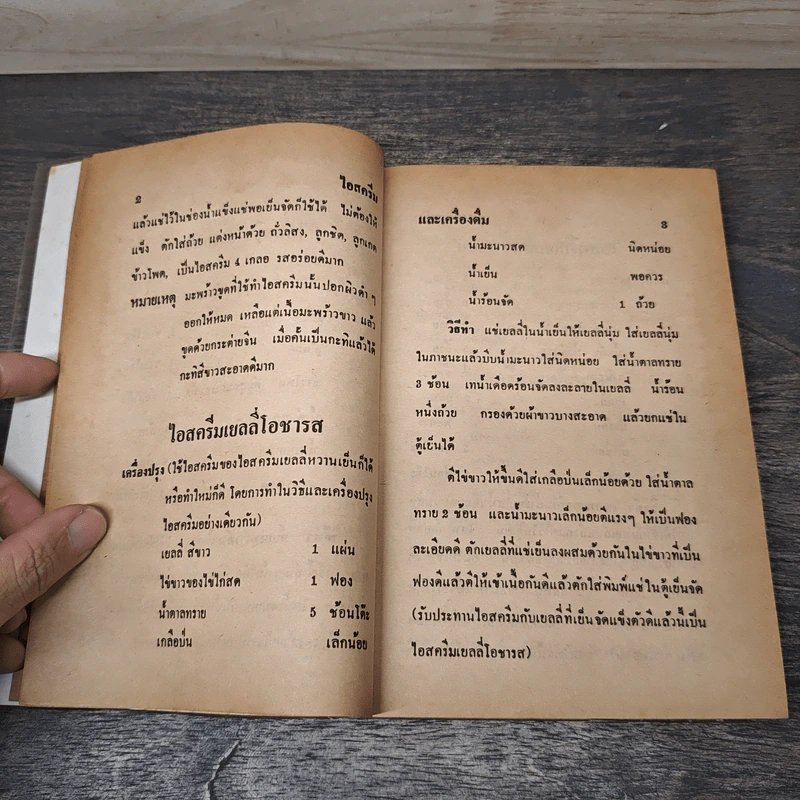 2
ไอสครีม
แล้วแช่ไว้ในช่องน้ำแข็งแช่พอเย็นจัดก็ใช้ได้ ไม่ต้องให้
แข็ง ตักใส่ถ้วย แต่งหน้าด้วย ถั่วลิสง, ลูกชิด, ลูกเกด
ข้าวโพด, เป็นไอสครีม 4 เกลอ รสอร่อยดีมาก
หมายเหตุ มะพร้าวขูดที่ใช้ทำไอสครีมนั้นปอกผิวดำ ๆ
ออกให้หมด เหลือแต่เนื้อมะพร้าวขาว แล้ว
ขูดด้วยกระต่ายจีน เมื่อคั้นเป็นกะทิแล้วได้
กะทิสีขาวสะอาดดีมาก
ไอสครีมเยลลี่โอชารส
เครื่องปรุง (ใช้ไอสครีมของไอสครีมเยลลี่หวานเย็นก็ได้
หรือทำใหม่ก็ดี โดยการทำในวิธีและเครื่องปรุง
ไอสครีมอย่างเดียวกัน)
เยลลี่ สีขาว 1 แผ่น
ไข่ขาวของไข่ไก่สด 1 ฟอง
น้ำตาลทราย 5 ช้อนโต๊ะ
เกลือป่น เล็กน้อย
และเครื่องดื่ม
3
น้ำมะนาวสด นิดหน่อย
น้ำเย็น พอควร
น้ำร้อนจัด 1 ถ้วย
วิธีทำ แช่เยลลี่ในน้ำเย็นให้เยลลี่นุ่ม ใส่เยลลี่นุ่ม
ในภาชนะแล้วบีบน้ำมะนาวใส่นิดหน่อย ใส่น้ำตาลทราย
3 ช้อน เทน้ำเดือดร้อนจัดลงละลายในเยลลี่ น้ำร้อน
หนึ่งถ้วย กรองด้วยผ้าขาวบางสะอาด แล้วยกแช่ใน
ตู้เย็นได้
ตีไข่ขาวให้ขึ้นดีใส่เกลือป่นเล็กน้อยด้วย ใส่น้ำตาล
ทราย 2 ช้อน และน้ำมะนาวเล็กน้อยตีแรงๆ ให้เป็นฟอง
ละเอียดดี ตักเยลลี่ที่แช่เย็นลงผสมด้วยกันในไข่ขาวที่เป็น
ฟองดีแล้วตีให้เข้าเนื้อกันดีแล้วตักใส่พิมพ์แช่ในตู้เย็นจัด
(รับประทานไอสครีมกับเยลลี่ที่เย็นจัดแข็งตัวดีแล้วนี้เป็น
ไอสครีมเยลลี่โอชารส)